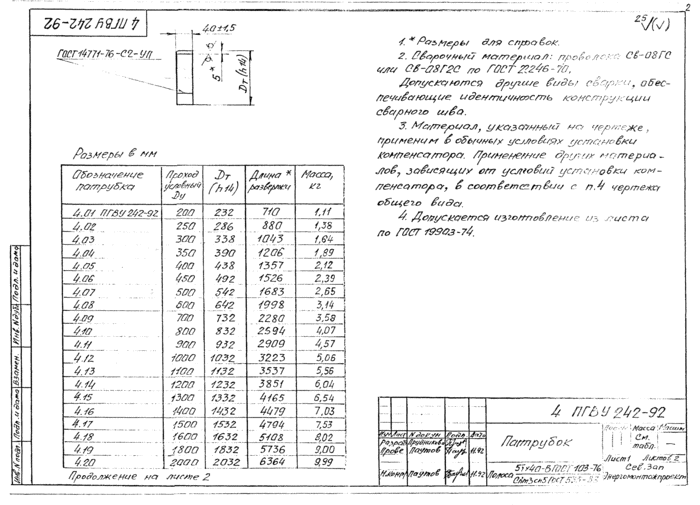 2
4 ПГВУ 242-92
25
(√)
40±1,5
ГОСТ 14771-76-С2-УП
5*
Dт (h14)
1. * Размеры для справок.
2. Сварочный материал: проволока СВ-08ГС
или СВ-08Г2С по ГОСТ 2246-70.
Допускаются другие виды сварки, обес-
печивающие идентичность конструкции
сварного шва.
3. Материал, указанный на чертеже,
применим в обычных условиях установки
компенсатора. Применение других материа-
лов, зависящих от условий установки ком-
пенсатора, в соответствии с п.4 чертежа
общего вида.
4. Допускается изготовление из листа
по ГОСТ 19903-74.
Размеры в мм
Обозначение патрубка | Проход условный Dу | Dт (h14) | Длина * развертки | Масса, кг
4.01 ПГВУ 242-92 200 232 710 1,11
4.02 250 286 880 1,38
4.03 300 338 1043 1,64
4.04 350 390 1206 1,89
4.05 400 438 1357 2,12
4.06 450 492 1526 2,39
4.07 500 542 1683 2,65
4.08 600 642 1998 3,14
4.09 700 732 2280 3,58
4.10 800 832 2594 4,07
4.11 900 932 2909 4,57
4.12 1000 1032 3223 5,06
4.13 1100 1132 3537 5,56
4.14 1200 1232 3851 6,04
4.15 1300 1332 4165 6,54
4.16 1400 1432 4479 7,03
4.17 1500 1532 4794 7,53
4.18 1600 1632 5108 8,02
4.19 1800 1832 5736 9,00
4.20 2000 2032 6364 9,99
Продолжение на листе 2
Подп. и дата
Взам.ен.
Подп. и дата
Инв.№ подл
4 ПГВУ 242-92
Патрубок
Масса
См. табл.
Лист 1 Листов 2
Н.контр Паутов Н.92
Полоса
5х40-В ГОСТ 103-76
Сев.Зап
Энергомонтажпроект